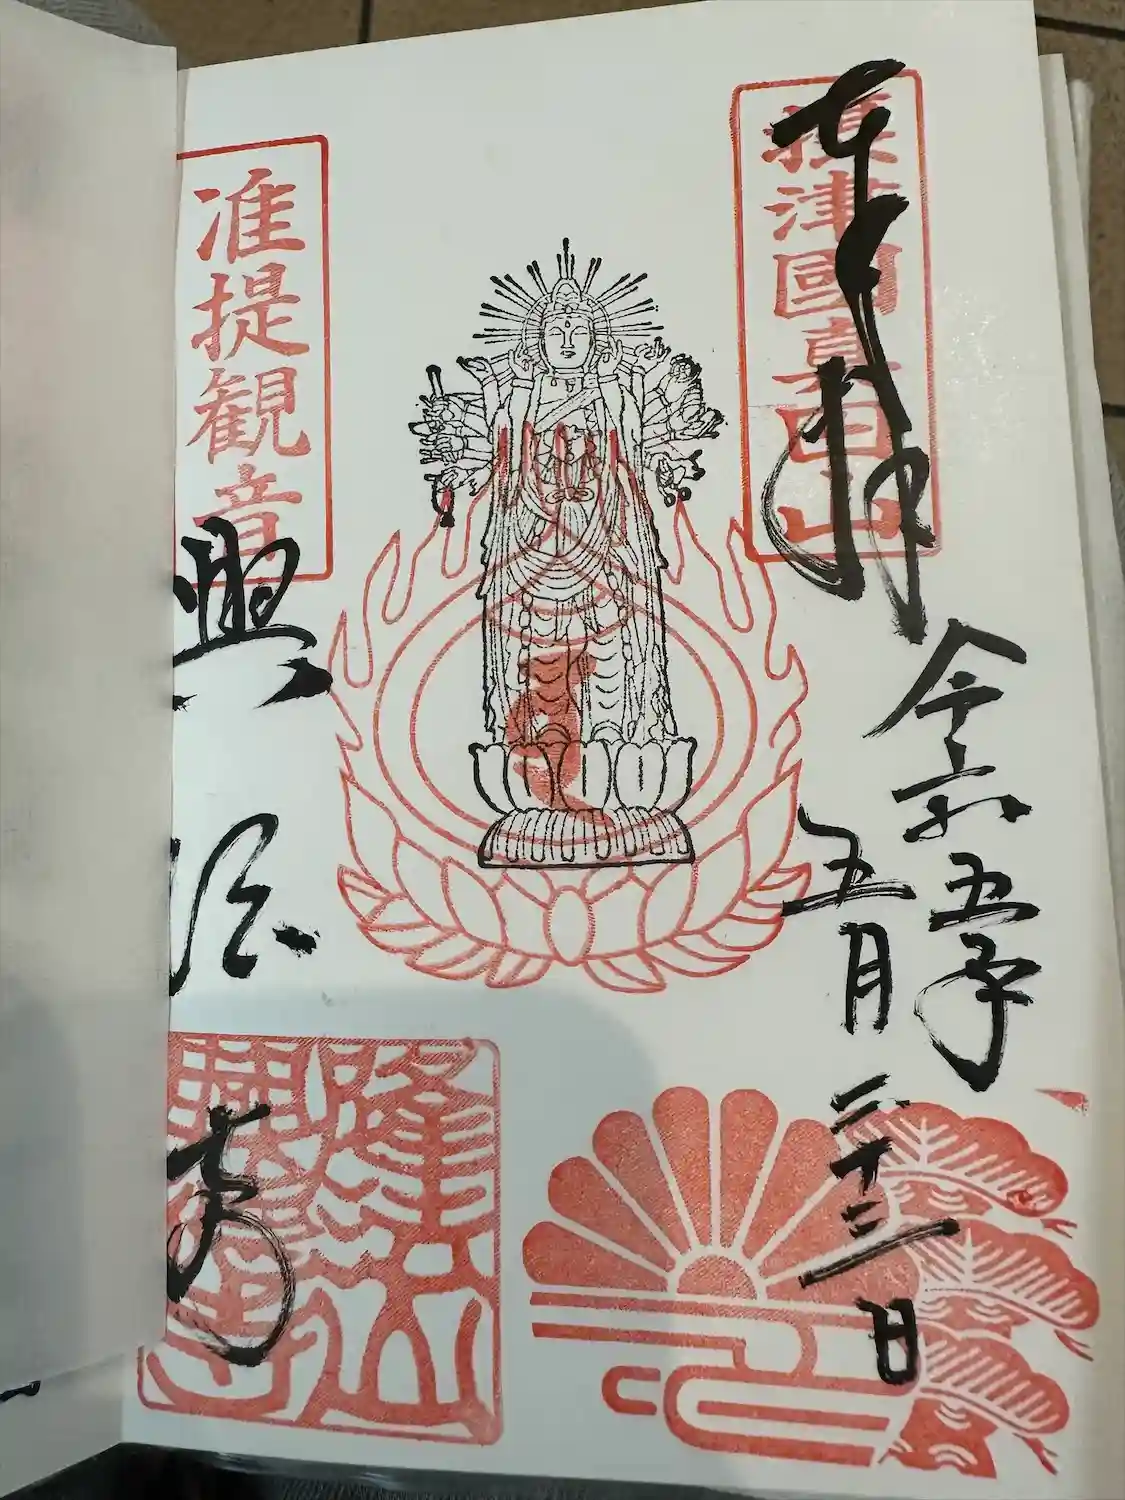 奉拝
津國真田山
令和五年
五月二十三日
准提観音
興徳寺
隆山
興徳寺